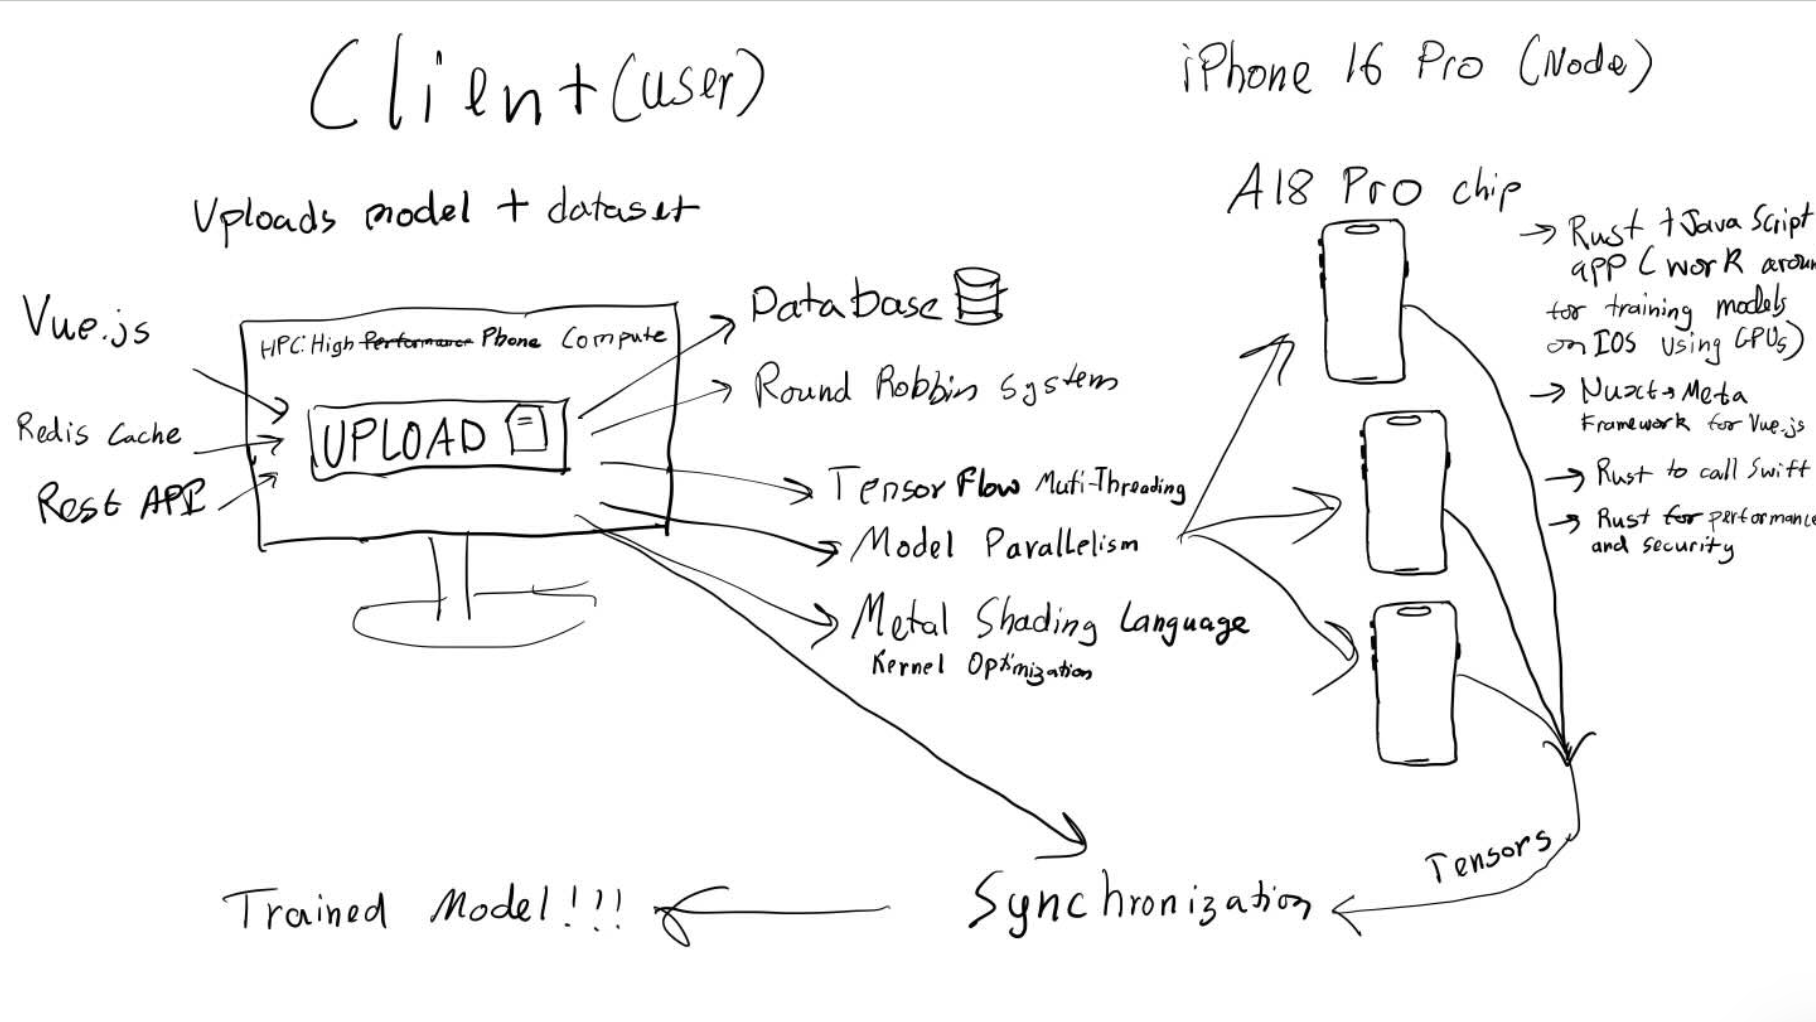 Client (user)
iPhone 16 Pro (Node)
Uploads model + dataset
A18 Pro chip
Vue.js
Redis Cache
Rest API
HPC: High Performance Phone Compute
UPLOAD
Database
Round Robbin System
TensorFlow Muti-Threading
Model Parallelism
Metal Shading Language
Kernel Optimization
→ Rust + JavaScript
app (work aroun
for training models
on IOS using GPUs)
→ Nuxt → Meta
Framework for Vue.js
→ Rust to call Swift
→ Rust for performance
and security
Tensors
Synchronization
Trained Model!!!